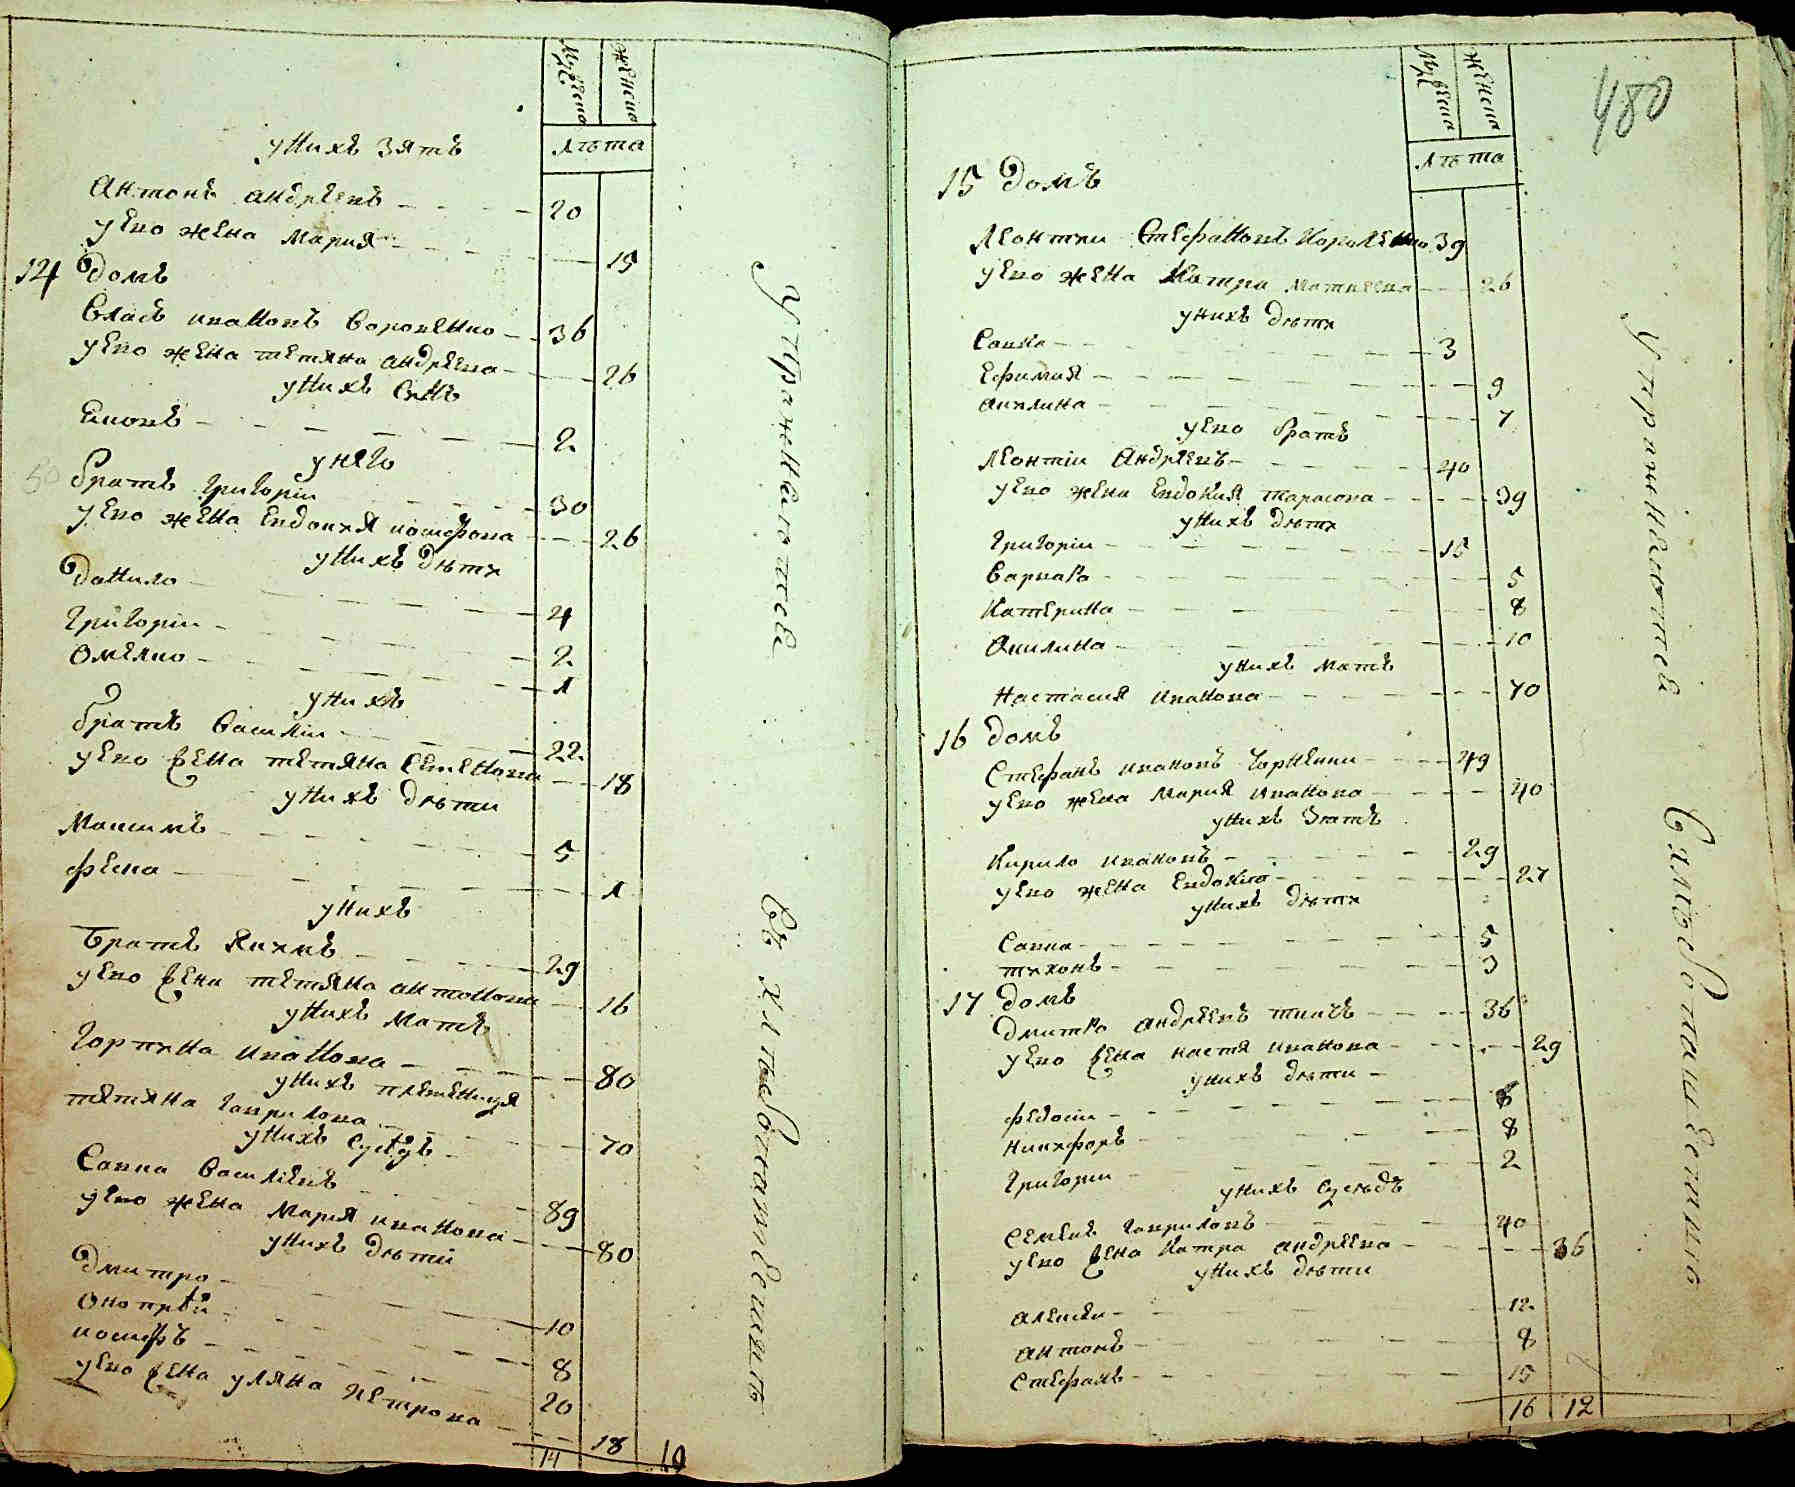 мужеска женска
лѣта
у нихъ зять
Антонъ Андреевъ 20
у его жена Мария 15
14 домъ
Власъ Ивановъ 36
у его жена Тетяна Андреева 26
у нихъ сынъ
2
у него
братъ Григорій 30
у его жена Евдокия 26
у нихъ дѣти
Данило 4
Григорій 2
Омелко 1
у нихъ
братъ Василій 22
у его жена Тетяна Семенова 18
у нихъ дѣти
Максимъ 5
Феска 1
у нихъ
братъ Якимъ 29
у его жена Тетяна Антонова 16
у нихъ мать
Горпина Ивановна 80
у нихъ племеница
Тетяна Гаврилова 70
у нихъ сусѣдъ
Савка Василіевъ 89
у его жена Мария Иванова 80
у нихъ дѣти
Дмитро 10
Онопрѣй 8
Иосифъ 20
у его жена Уляна Петрова 18
14 10
Упражняются
въ хлѣбопашествѣ
480
мужеска женска
лѣта
15 домъ
Леонтии Стефановъ 39
у его жена Матвеева 26
у нихъ дѣти
Савка 3
Ефимия 9
Акилина 7
у его братъ
Леонтіи Андреевъ 40
у его жена Евдокия Тарасова 39
у нихъ дѣти
Григоріи 15
Варвара 5
Катерина 8
Акилина 10
у нихъ мать
Настасия Иванова 70
16 домъ
Стефанъ Ивановъ 49
у его жена Мария Иванова 40
у нихъ зять
Кирило Ивановъ 29
у его жена Евдокия 27
у нихъ дѣти
Савка 5
Тихонъ 3
17 домъ
Дмитро Андреевъ 36
у его жена Настя Иванова 29
у нихъ дѣти
Федосіи 6
Никифоръ 8
Григории 2
у нихъ сусѣдъ
Семенъ Гавриловъ 40
у его жена Катра Андреева 36
у нихъ дѣти
Алексѣи 12
Антонъ 8
Стефанъ 15
16 12
Упражняются
въ хлѣбопашествѣ